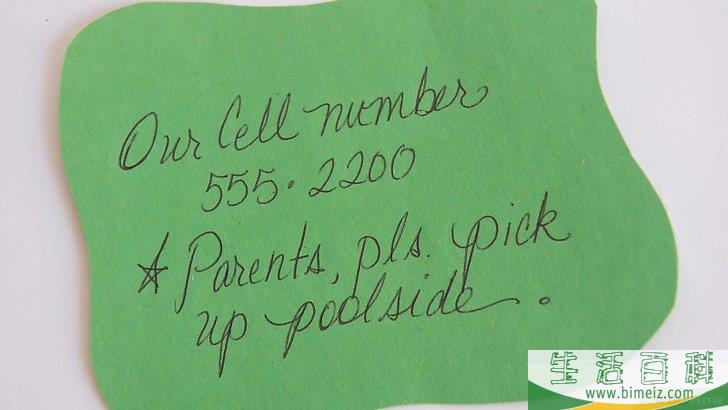 Our Cell number
555·2200
☆ Parents, pls. pick
up poolside.
生活百科
www.bimeiz.com